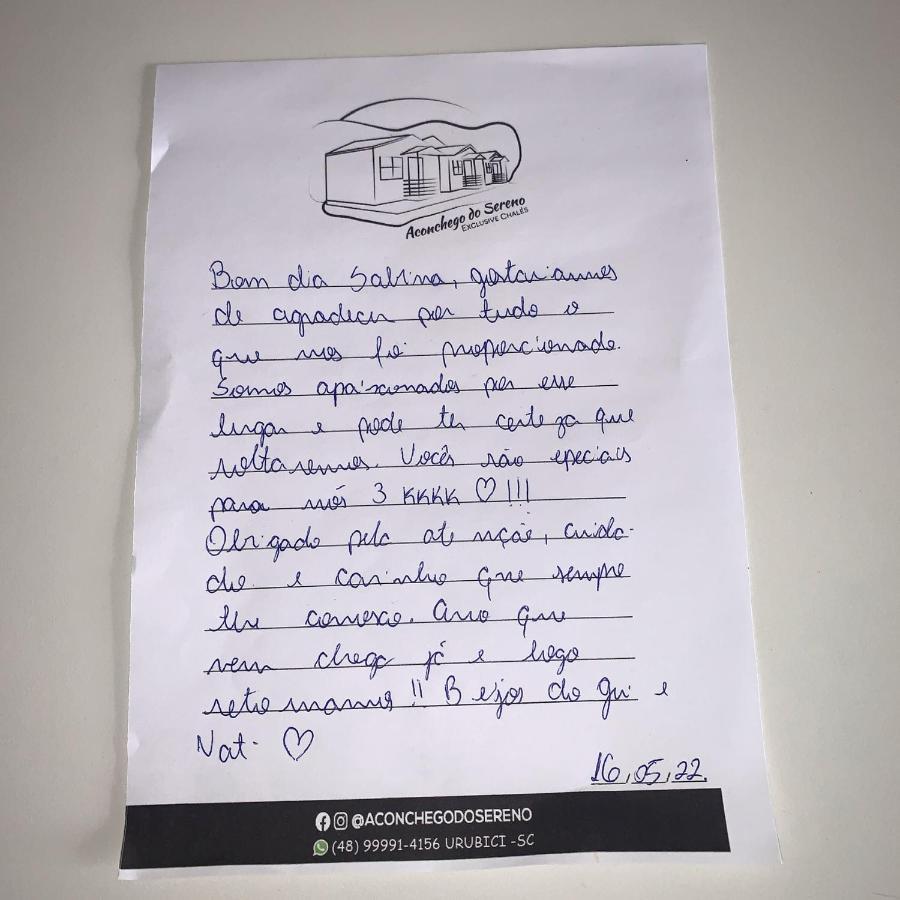 Aconchego do Sereno
EXCLUSIVE CHALÉS
Bom dia Sabrina, gostariamos
de agradecer por tudo o
que nos foi proporcionado.
Somos apaixonados por esse
lugar e pode ter certeza que
voltaremos. Vocês são epeciais
para nós 3 KKKK ♡!!!
Obrigado pela atenção, cuida-
do e carinho que sempre
teve conosco. Ano que
vem chega já e logo
retornamos!! Beijos do Gui e
Nati ♡
16,05,22.
@ACONCHEGODOSERENO
(48) 99991-4156 URUBICI -SC